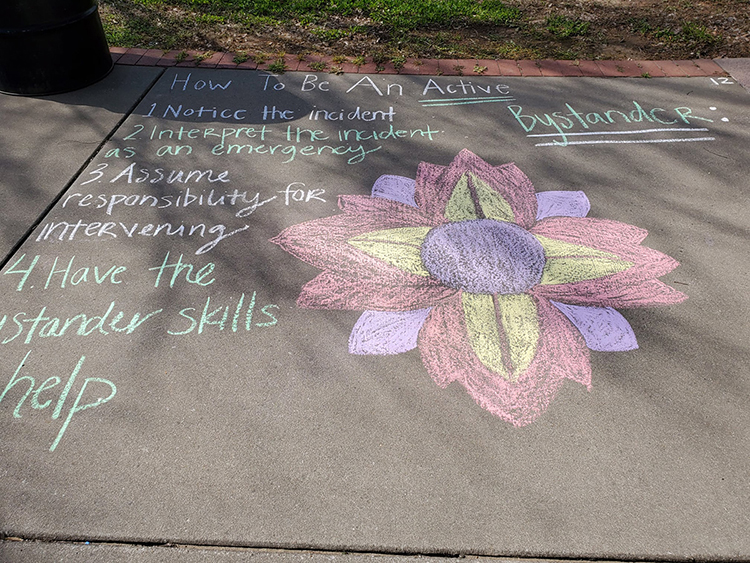 How To Be An Active
Bystander:
1 Notice the incident
2 Interpret the incident
as an emergency
3. Assume
responsibility for
intervening
4. Have the
ystander skills
help
12